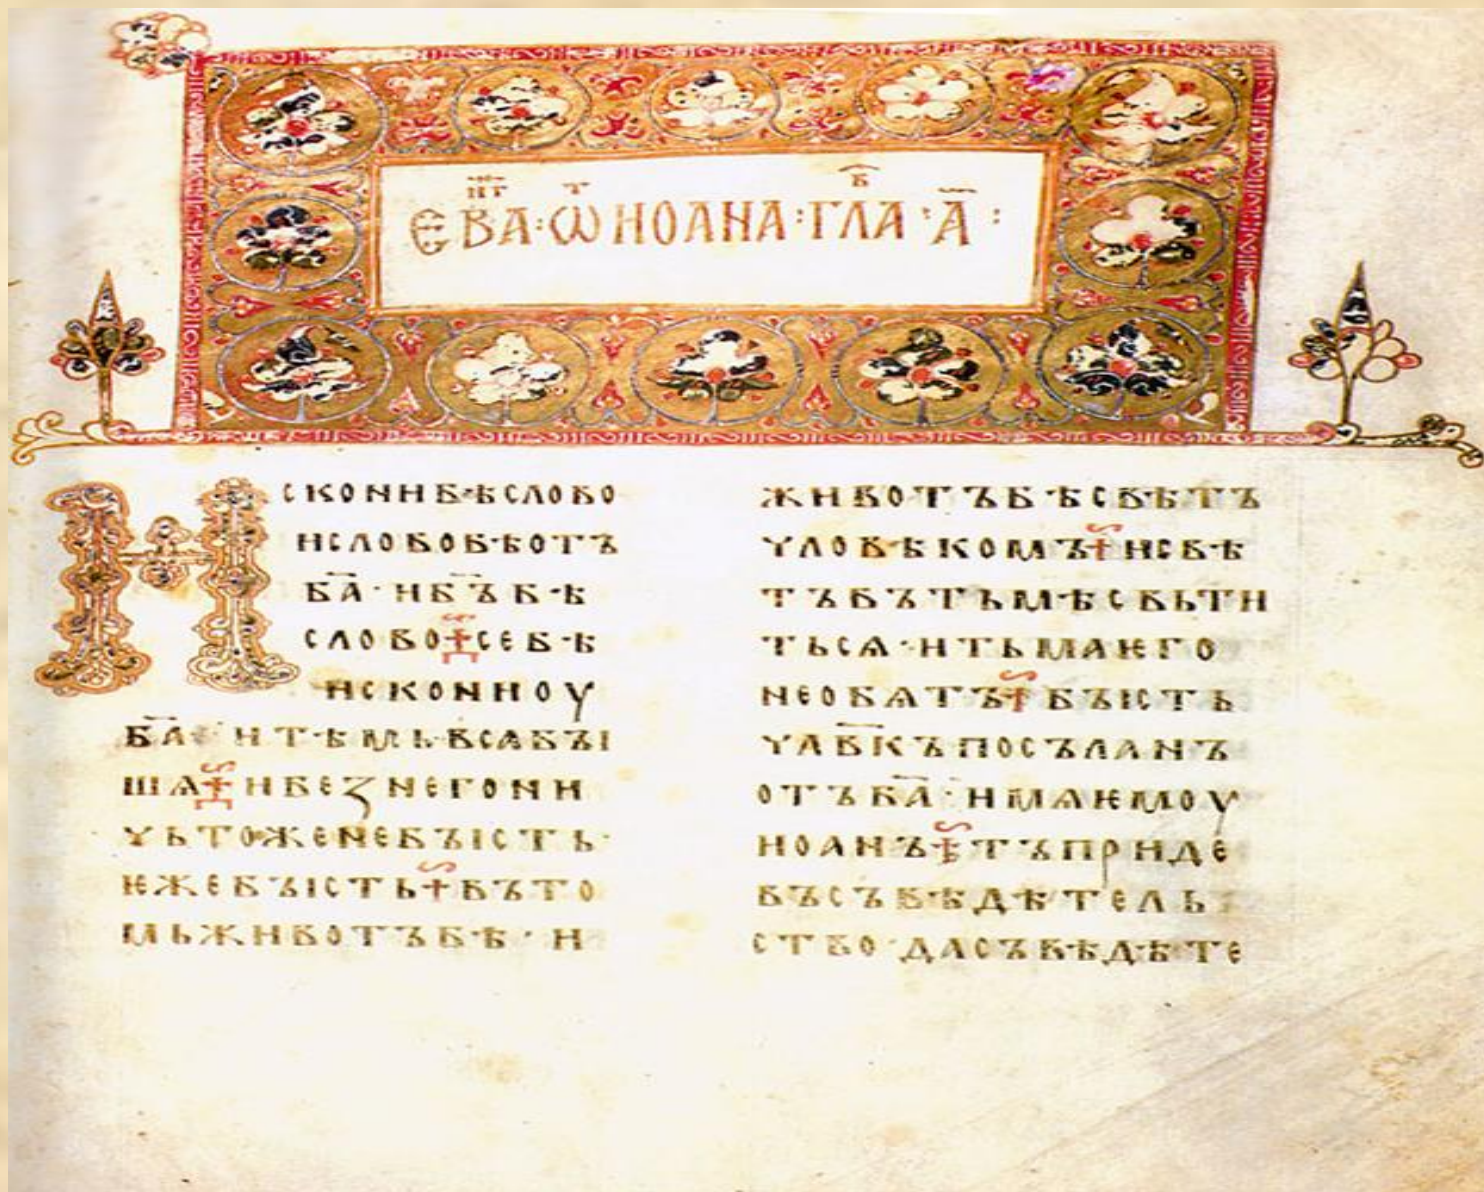 ЕВАⷩ҇ⷢ҇ : Ѡⷮ ИОАНА : ГЛАⷡ҇ : А҃ :
Исконибѣслово
исловобѣотъ
ба҃ · иб҃ъбѣ
слово ⁜ себѣ
исконноу
ба҃ · итѣмьвсꙗбꙑ
шѧ ⁜ ибезнегони
чьтоженебꙑсть ·
ѥжебꙑсть ⁜ въто
мьживотъбѣ · и
животъбѣсвѣтъ
чловѣкомъ ⁜ исвѣ
тъвътьмѣсвьти
тьсѧ · итьмаѥго
необѧтъ ⁜ бꙑсть
члв҃къпосъланъ
отъба҃ · имѧѥмоу
иоанъ ⁜ тъприде
въсъвѣдѣтель
ство · дасъвѣдѣте